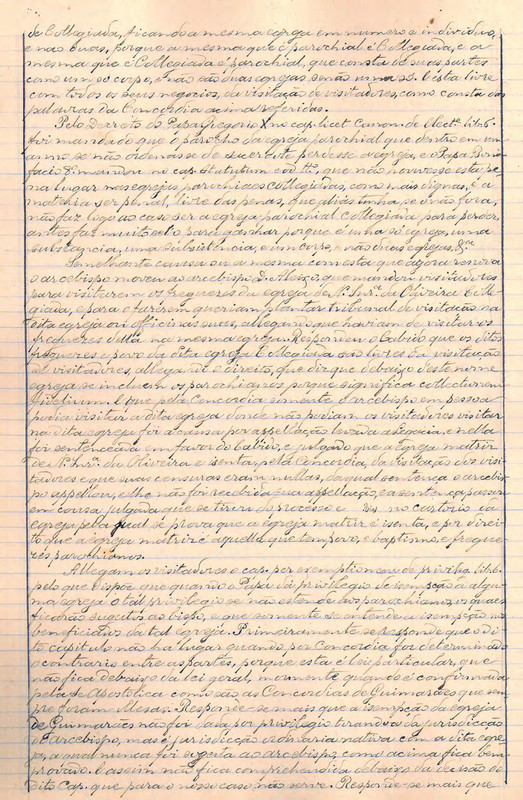 de Collegiada, ficando a mesma egreja em numero e individuo,
e não duas, porque a mesma que é parochial é Collegiada, e a
mesma que é Collegiada é parochial, que consta de suas partes
como um só corpo, e não são duas egrejas senão uma só. E está livre
com todos os seus negocios, da visitação de visitadores, como consta das
palavras da Concordia acima referidas.
Pelo Decreto do Papa Gregorio X no cap. licet Canon. de Elect. lib. 6.
foi mandado que o parocho da egreja parochial que dentro em um
anno se não ordenasse de sacerdote perdesse a egreja, e o Papa Boni-
facio mandou no cap. statutum eod. tt., que não houvesse esta pe-
na lugar nas egrejas parochiaes collegiadas, como mais dignas, e a
materia ser penal, livre das penas, que aliás tinha, se o não fora,
não faz logo ao caso ser a egreja parochial Collegiada para perder,
antes faz muito só para ganhar porque é uma só egreja, uma
substancia, uma subsistencia, e um corpo, e não duas egrejas, &ª
Semelhante causa ou a mesma com esta que agora renova
o arcebispo moveu o arcebispo D. Aleixo, que mandou visitadores
para visitarem os freguezes da egreja de N. Snrª. da Oliveira Colle-
giada, e para o fazerem queriam plantar tribunal da visitação na
dita egreja ou officinas suas, allegando que haviam de visitar os
freguezes della na mesma egreja. Respondeu o Cabido que os ditos
freguezes e povo da dita egreja Collegiada são livres da visitação
de visitadores, allegando o direito, que diz que debaixo deste nome
egreja se incluem os parochianos porque significa collectionem
fidelium. E que pela Concordia somente o arcebispo em pessoa
podia visitar a dita egreja donde não podiam os visitadores visitar
na dita egreja foi a causa por appellação levada a Legacia, e nella
foi sentenceada em favor do Cabido, e julgado que a egreja matriz
de N. Snrª. da Oliveira é isenta, pela Concordia, da visitação dos visi-
tadores e que suas censuras eram nullas, da qual sentença o arcebis-
po appellou, e lhe não foi recebida sua appellação, e a sentença passou
em cousa julgada que se tirou do processo e no cartorio da
egreja pela qual se prova que a egreja matriz é isenta, e por direi-
to que a egreja matriz é aquella que tem povo, e baptismo, e fregue-
zes parochianos.
Allegam os visitadores o cap. per exemptionem de privileg. lib. 6.
pelo que dispõe que quando o Papa dá privilegio de isempção a algu-
ma egreja o tal privilegio se não estende aos parochianos, os quaes
ficarão sugeitos ao bispo, e que somente se entende a isempção nos
beneficiados da tal egreja. Primeiramente se responde que o di-
to capitulo não ha lugar quando por Concordia foi determinado
o contrario entre as partes, porque esta é lei particular, que
não fica debaixo da lei geral, mormente quando é confirmada
pela Sé Apostolica como são as Concordias de Guimarães que sem-
pre foram illesas. Responde-se mais que a isempção da Egreja
de Guimarães não foi dada por privilegio tirando-a da jurisdicção
do arcebispo, mas é jurisdicção ordinaria nativa com a dita egre-
ja, a qual nunca foi sugeita ao arcebispo, como acima fica bem
provado. E assim não fica comprehendida debaixo da decisão do
dito Cap. que para o nosso caso não serve. Responde-se mais que